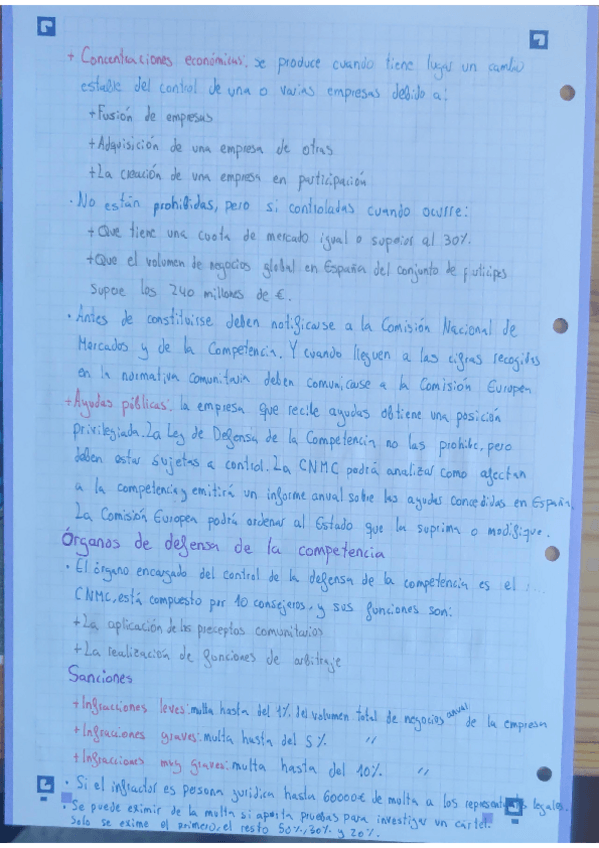 + Concentraciones económicas: se produce cuando tiene lugar un cambio
estable del control de una o varias empresas debido a:
+Fusión de empresas
+Adquisición de una empresa de otras
+La creación de una empresa en participación
· No están prohibidas, pero si controladas cuando ocurre:
+Que tiene una cuota de mercado igual o superior al 30%.
+Que el volumen de negocios global en España del conjunto de participes
supere los 240 millones de €.
· Antes de constituirse deben notificarse a la Comisión Nacional de
Mercados y de la Competencia. Y cuando lleguen a las cifras recogidas
en la normativa comunitaria deben comunicarse a la Comisión Europea
+Ayudas públicas: la empresa que recibe ayudas obtiene una posición
privilegiada. La Ley de Defensa de la Competencia no las prohibe, pero
deben estar sujetas a control. La CNMC podrá analizar como afectan
a la competencia y emitirá un informe anual sobre las ayudas concedidas en España.
La Comisión Europea podrá ordenar al Estado que la suprima o modifique.
Órganos de defensa de la competencia
· El órgano encargado del control de la defensa de la competencia es el ...
CNMC, está compuesto por 10 consejeros, y sus funciones son:
+La aplicación de los preceptos comunitarios
+La realización de funciones de arbitraje
Sanciones
+Infracciones leves: multa hasta del 1% del volumen total de negocios anual de la empresa
+Infracciones graves: multa hasta del 5% "
+Infracciones muy graves: multa hasta del 10% "
· Si el infractor es persona jurídica hasta 60000€ de multa a los representantes legales.
· Se puede eximir de la multa si aporta pruebas para investigar un cártel.
Solo se exime el primero, el resto 50%, 30% y 20%.